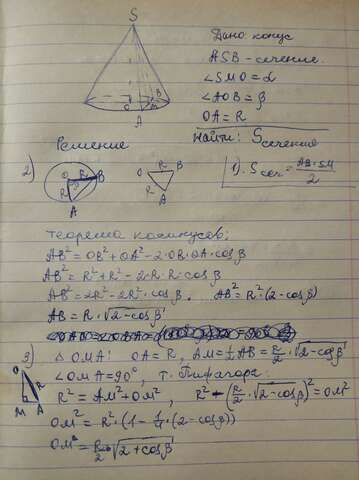 S
Дано конус
ASB - сечение.
∠SMO = α
∠AOB = β
OA = R
O
B
M
A
Найти: Sсечения
Решение
2)
O
R
B
R
A
R
B
O
R
A
1). Sсеч = AB·SM / 2
теорема косинусов:
AB² = OB² + OA² - 2·OB·OA·cosβ
AB² = R² + R² - 2·R·R·cosβ
AB² = 2R² - 2R²·cosβ. AB² = R²·(2-cosβ)
AB = R·√2-cosβ
3) △ OMA: OA = R, AM = ½AB = R/2·√2-cosβ
∠OMA = 90°, т. Пифагора:
O
R
M
A
R² = AM² + OM², R² - (R/2·√2-cosβ)² = OM²
OM² = R²·(1 - ¼·(2-cosβ))
OM² = R/2·√2+cosβ